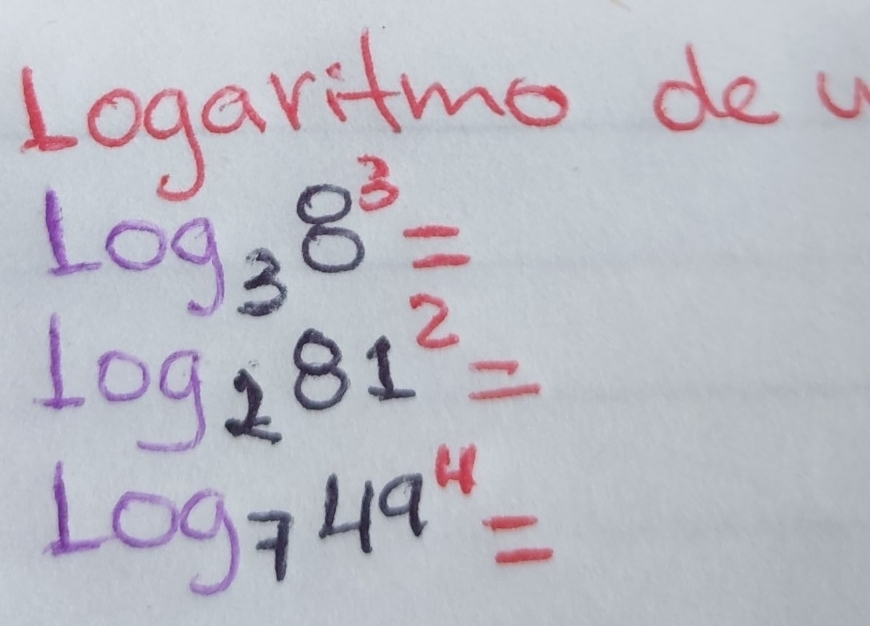 Logaritmo de
Log₃8³=
Log₂81²=
Log₇49⁴=